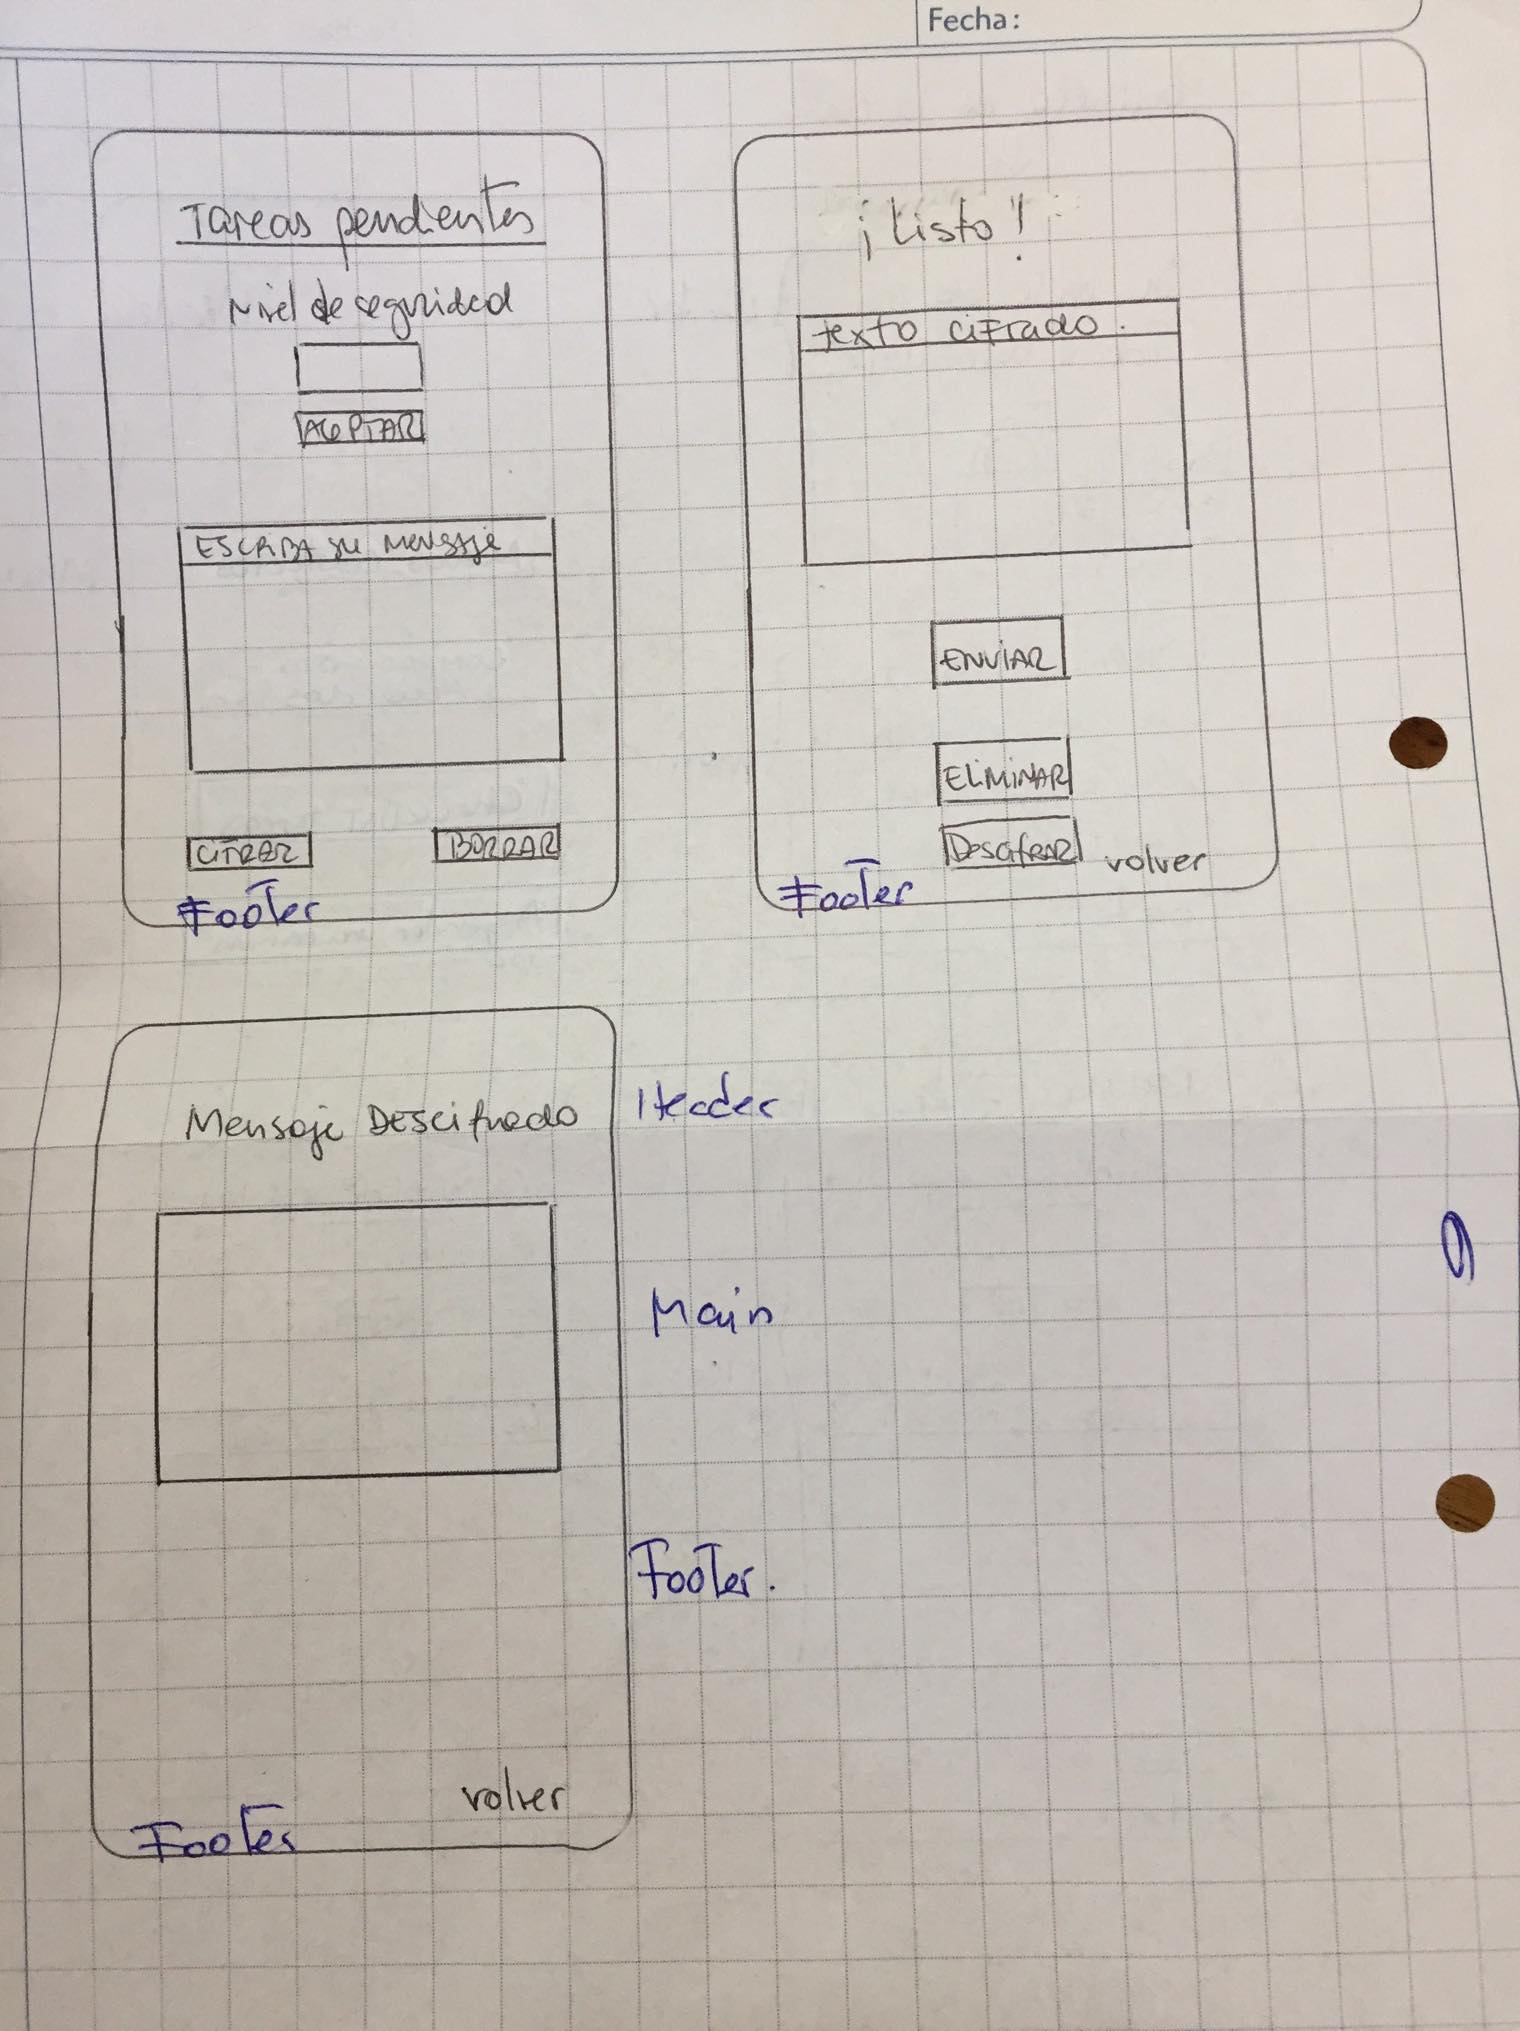 Fecha:
Tareas pendientes
Nivel de seguridad
ACEPTAR
ESCRIBA SU MENSAJE
CIFRAR
BORRAR
Footer
¡Listo!
texto cifrado.
ENVIAR
ELIMINAR
DESCIFRAR
volver
Footer
Mensaje DESCifrado
Header
Main
Footer.
volver
Footer